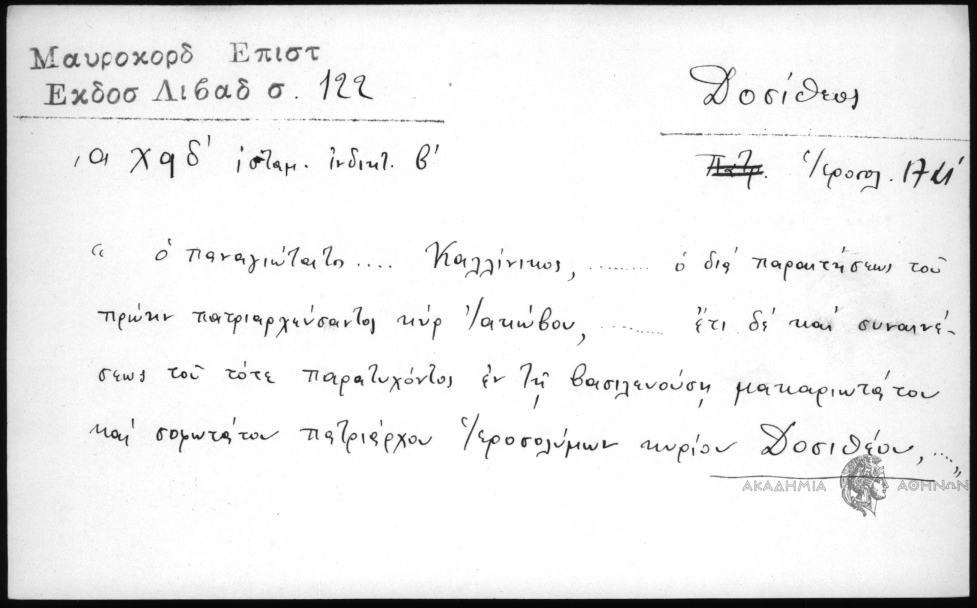 Μαυροκορδ Επιστ
Εκδοσ Λιβαδ σ. 122
Δοσίθεος
͵αχϟδ' ἱσταμ. ἰνδικτ. β'
Πατρ. Ἱεροσολ.
“ ὁ παναγιώτατος .... Καλλίνικος, ......... ὁ διά παραιτήσεως τοῦ
πρώην πατριαρχεύσαντος κύρ Ἰακώβου, ......... ἔτι δέ καί συναινέ-
σεως τοῦ τότε παρατυχόντος ἐν τῇ βασιλευούσῃ μακαριωτάτου
καί σοφωτάτου πατριάρχου Ἱεροσολύμων κυρίου Δοσιθέου, ....„
ΑΚΑΔΗΜΙΑ ΑΘΗΝΩΝ